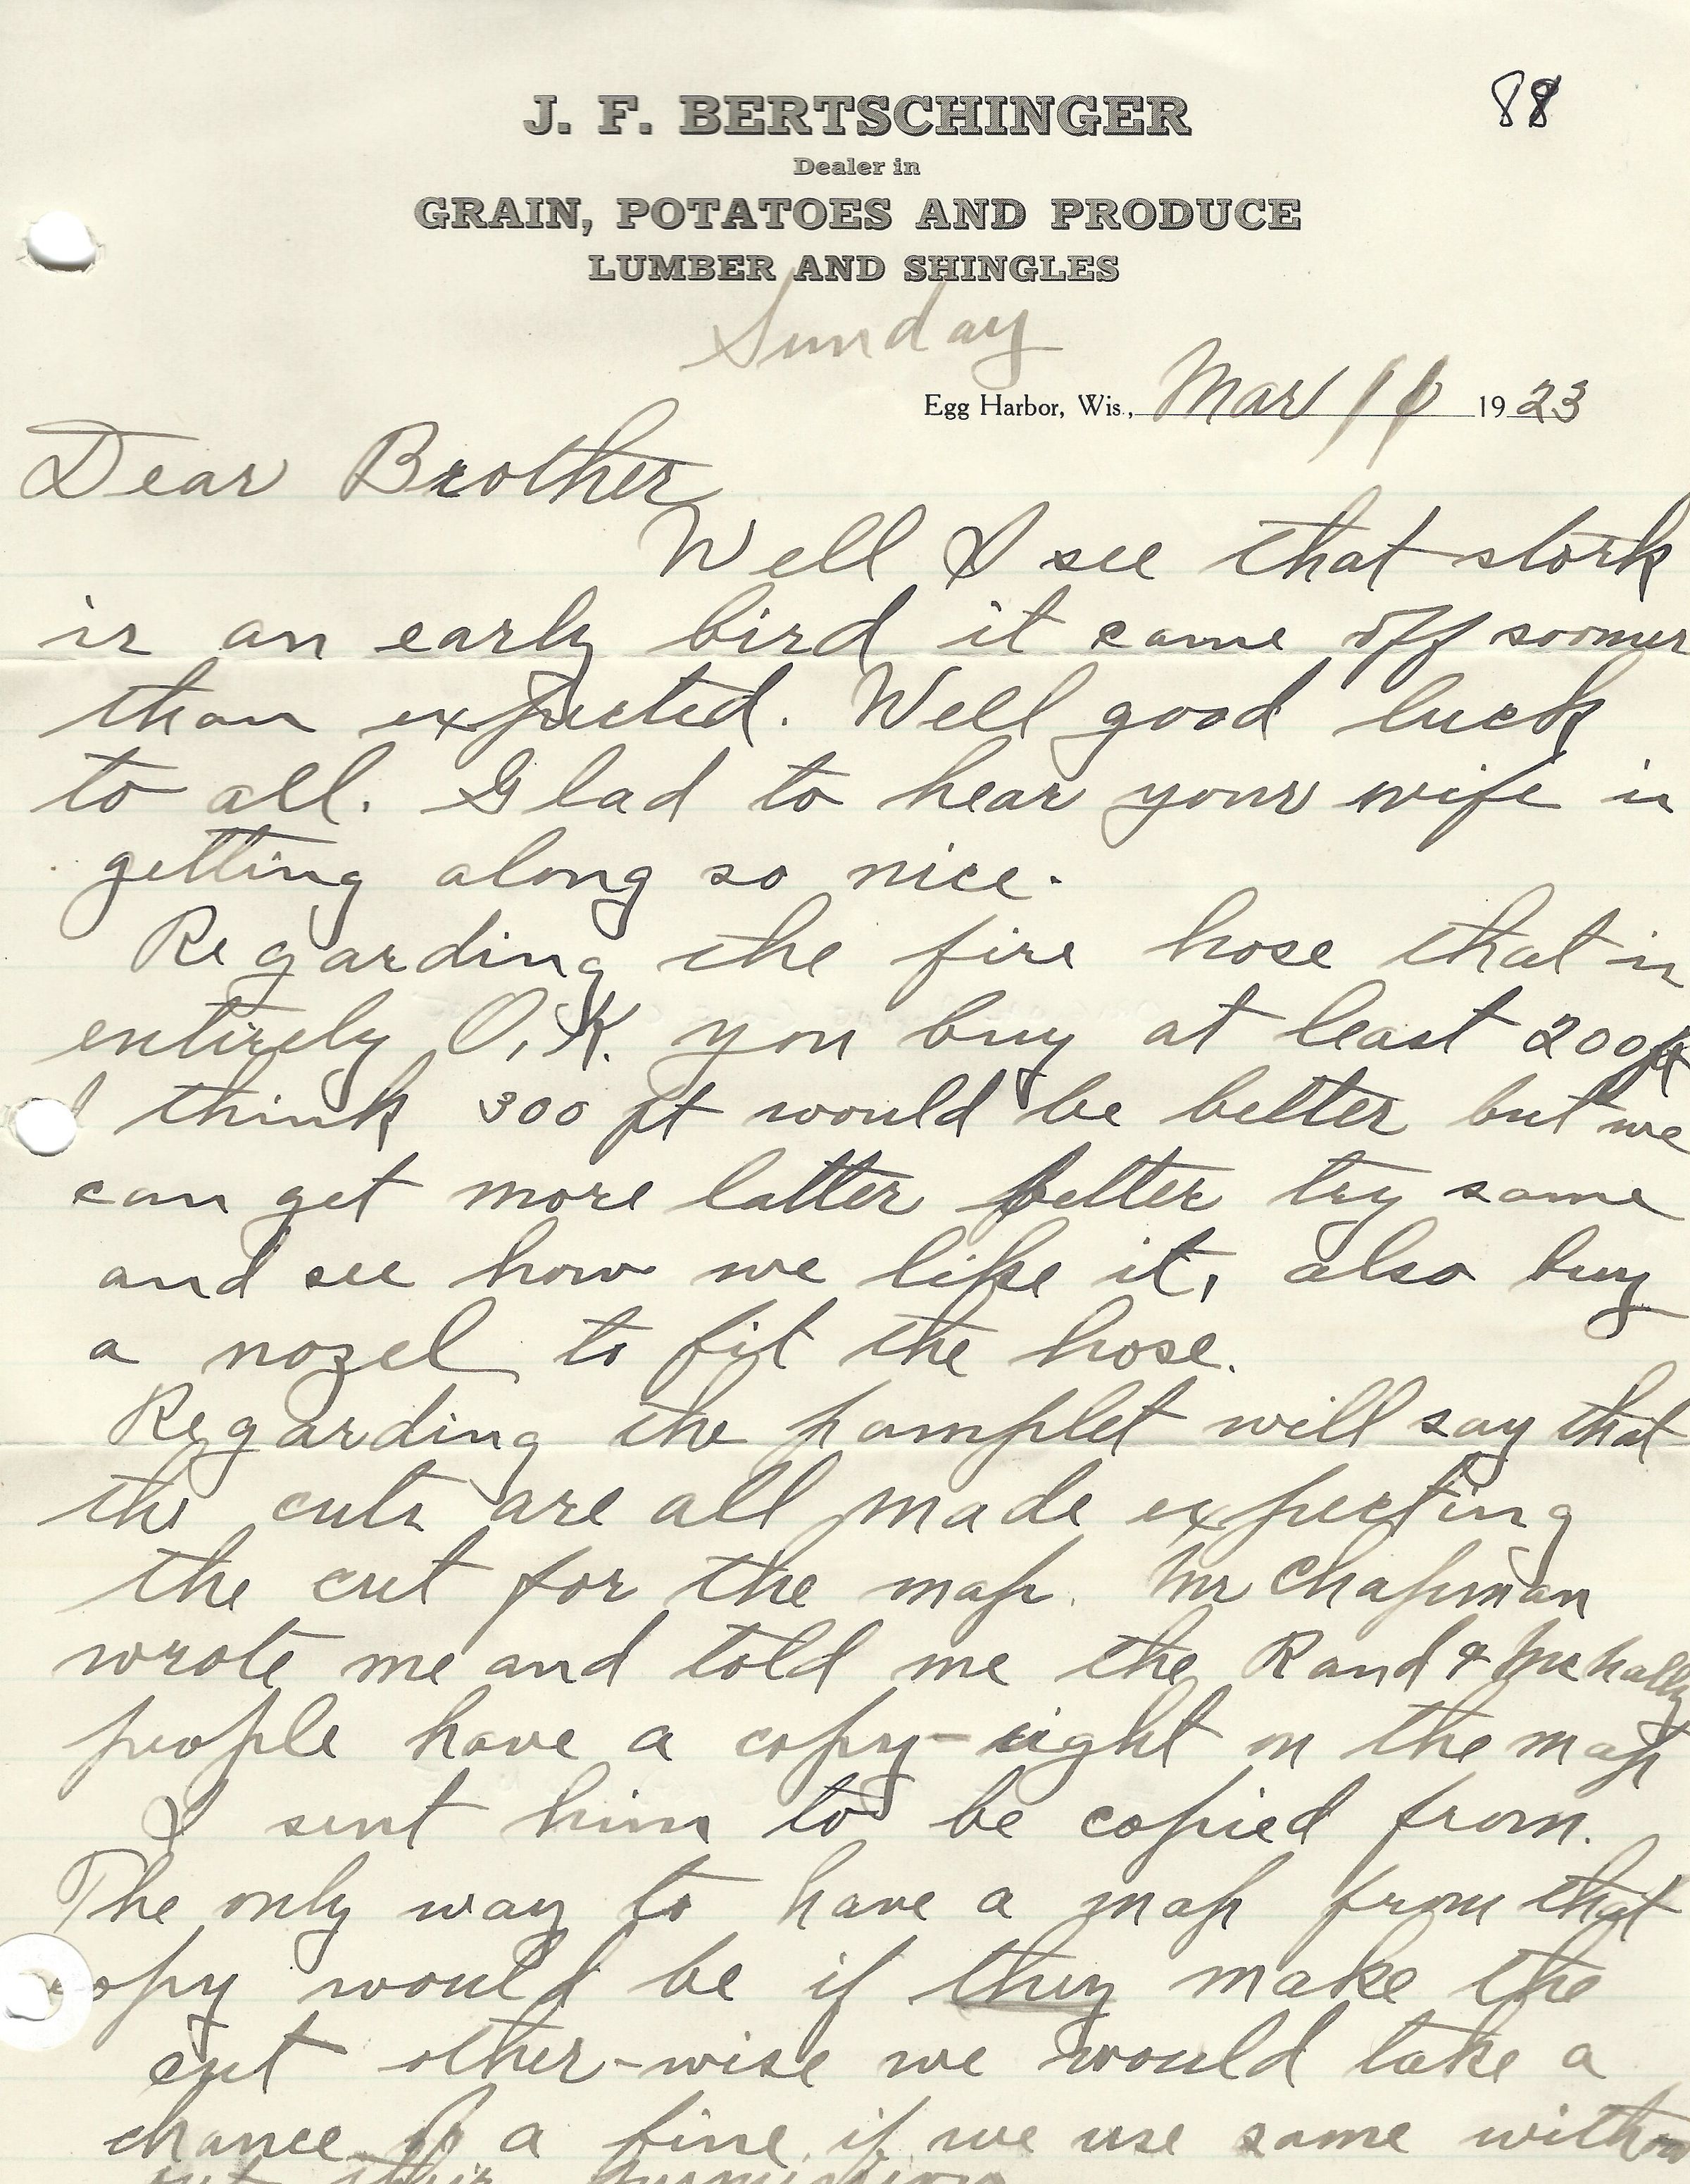 88
J. F. BERTSCHINGER
Dealer in
GRAIN, POTATOES AND PRODUCE
LUMBER AND SHINGLES
Sunday
Egg Harbor, Wis., Mar 1923
Dear Brother
Well I see that stork
is an early bird it came off sooner
than expected. Well good luck
to all. Glad to hear your wife is
getting along so nice.
Regarding the fire hose that is
entirely O.K. you buy at least 200 ft
I think 300 ft would be better but we
can get more latter better try same
and see how we like it, also buy
a nozel to fit the hose.
Regarding the pamplet will say that
the cuts are all made expecting
the cut for the map. Mr Chapman
wrote me and told me the Rand & McNally
people have a copy-right on the map
I sent him to be copied from.
The only way to have a map from that
copy would be if they make the
cut other-wise we would take a
chance of a fine if we use same with
out their permission